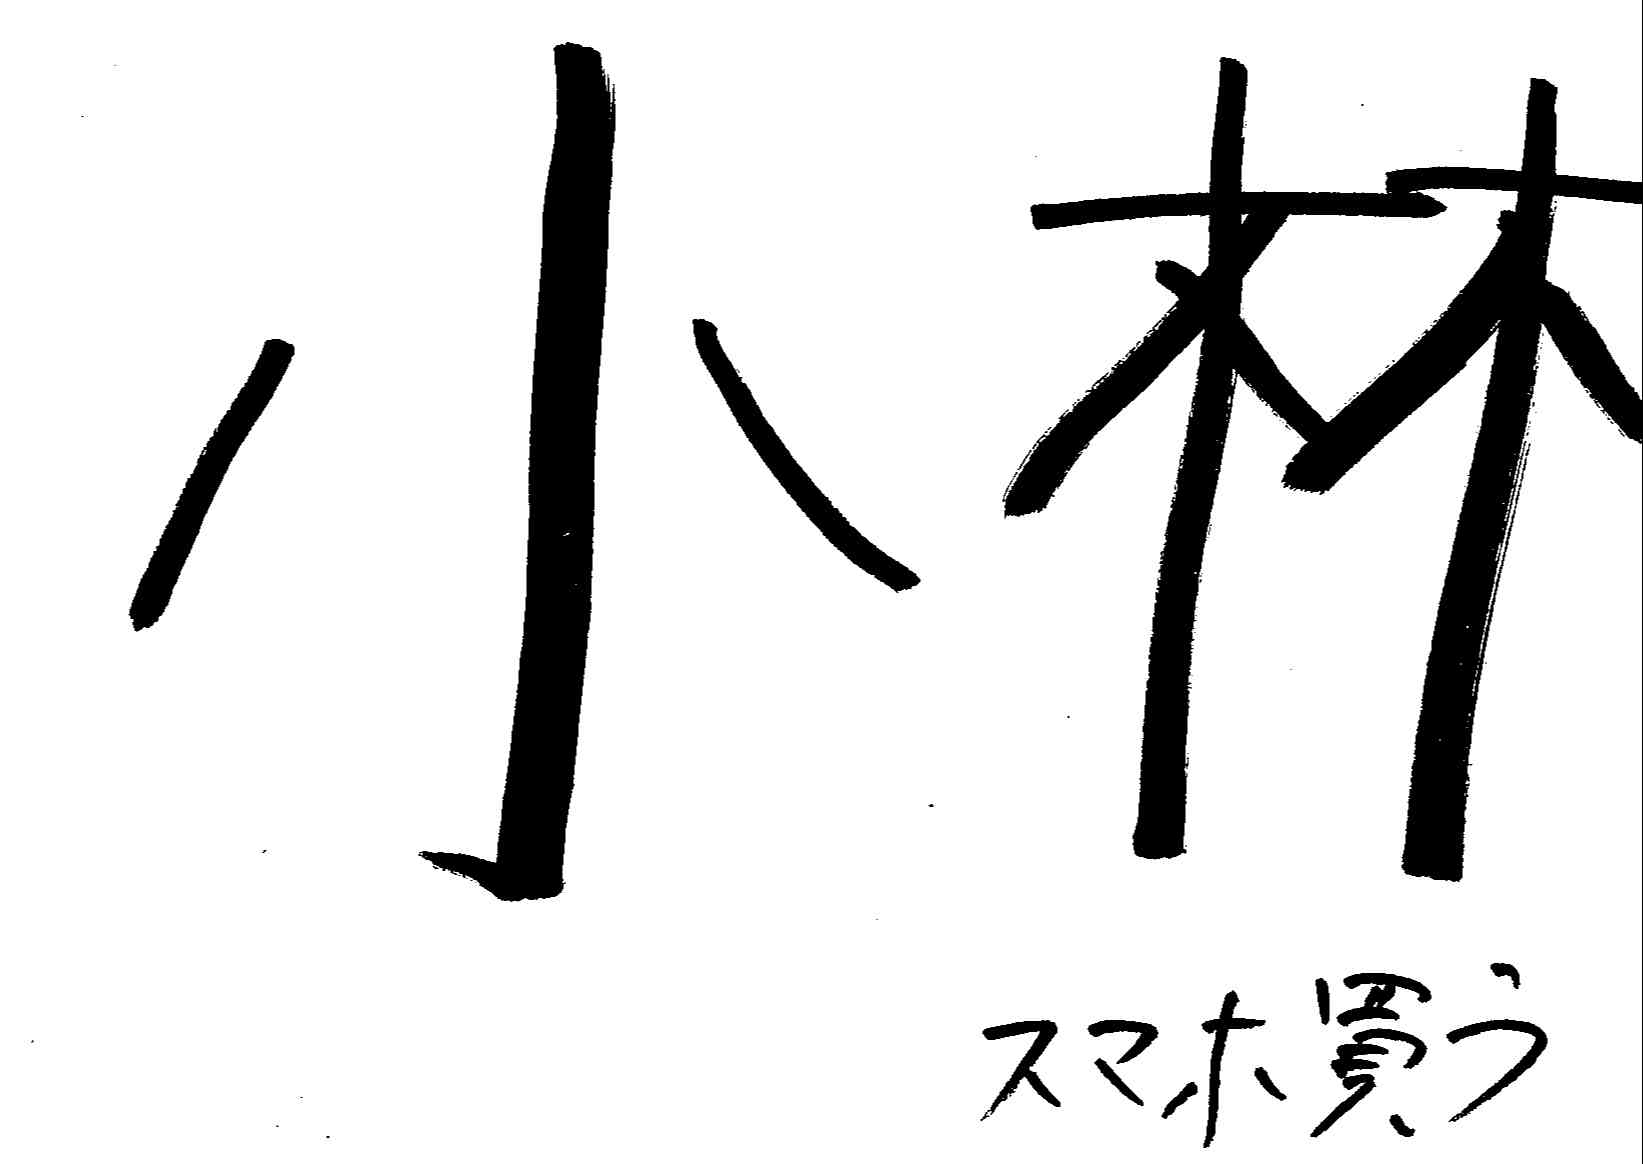 小林
スマホ買う